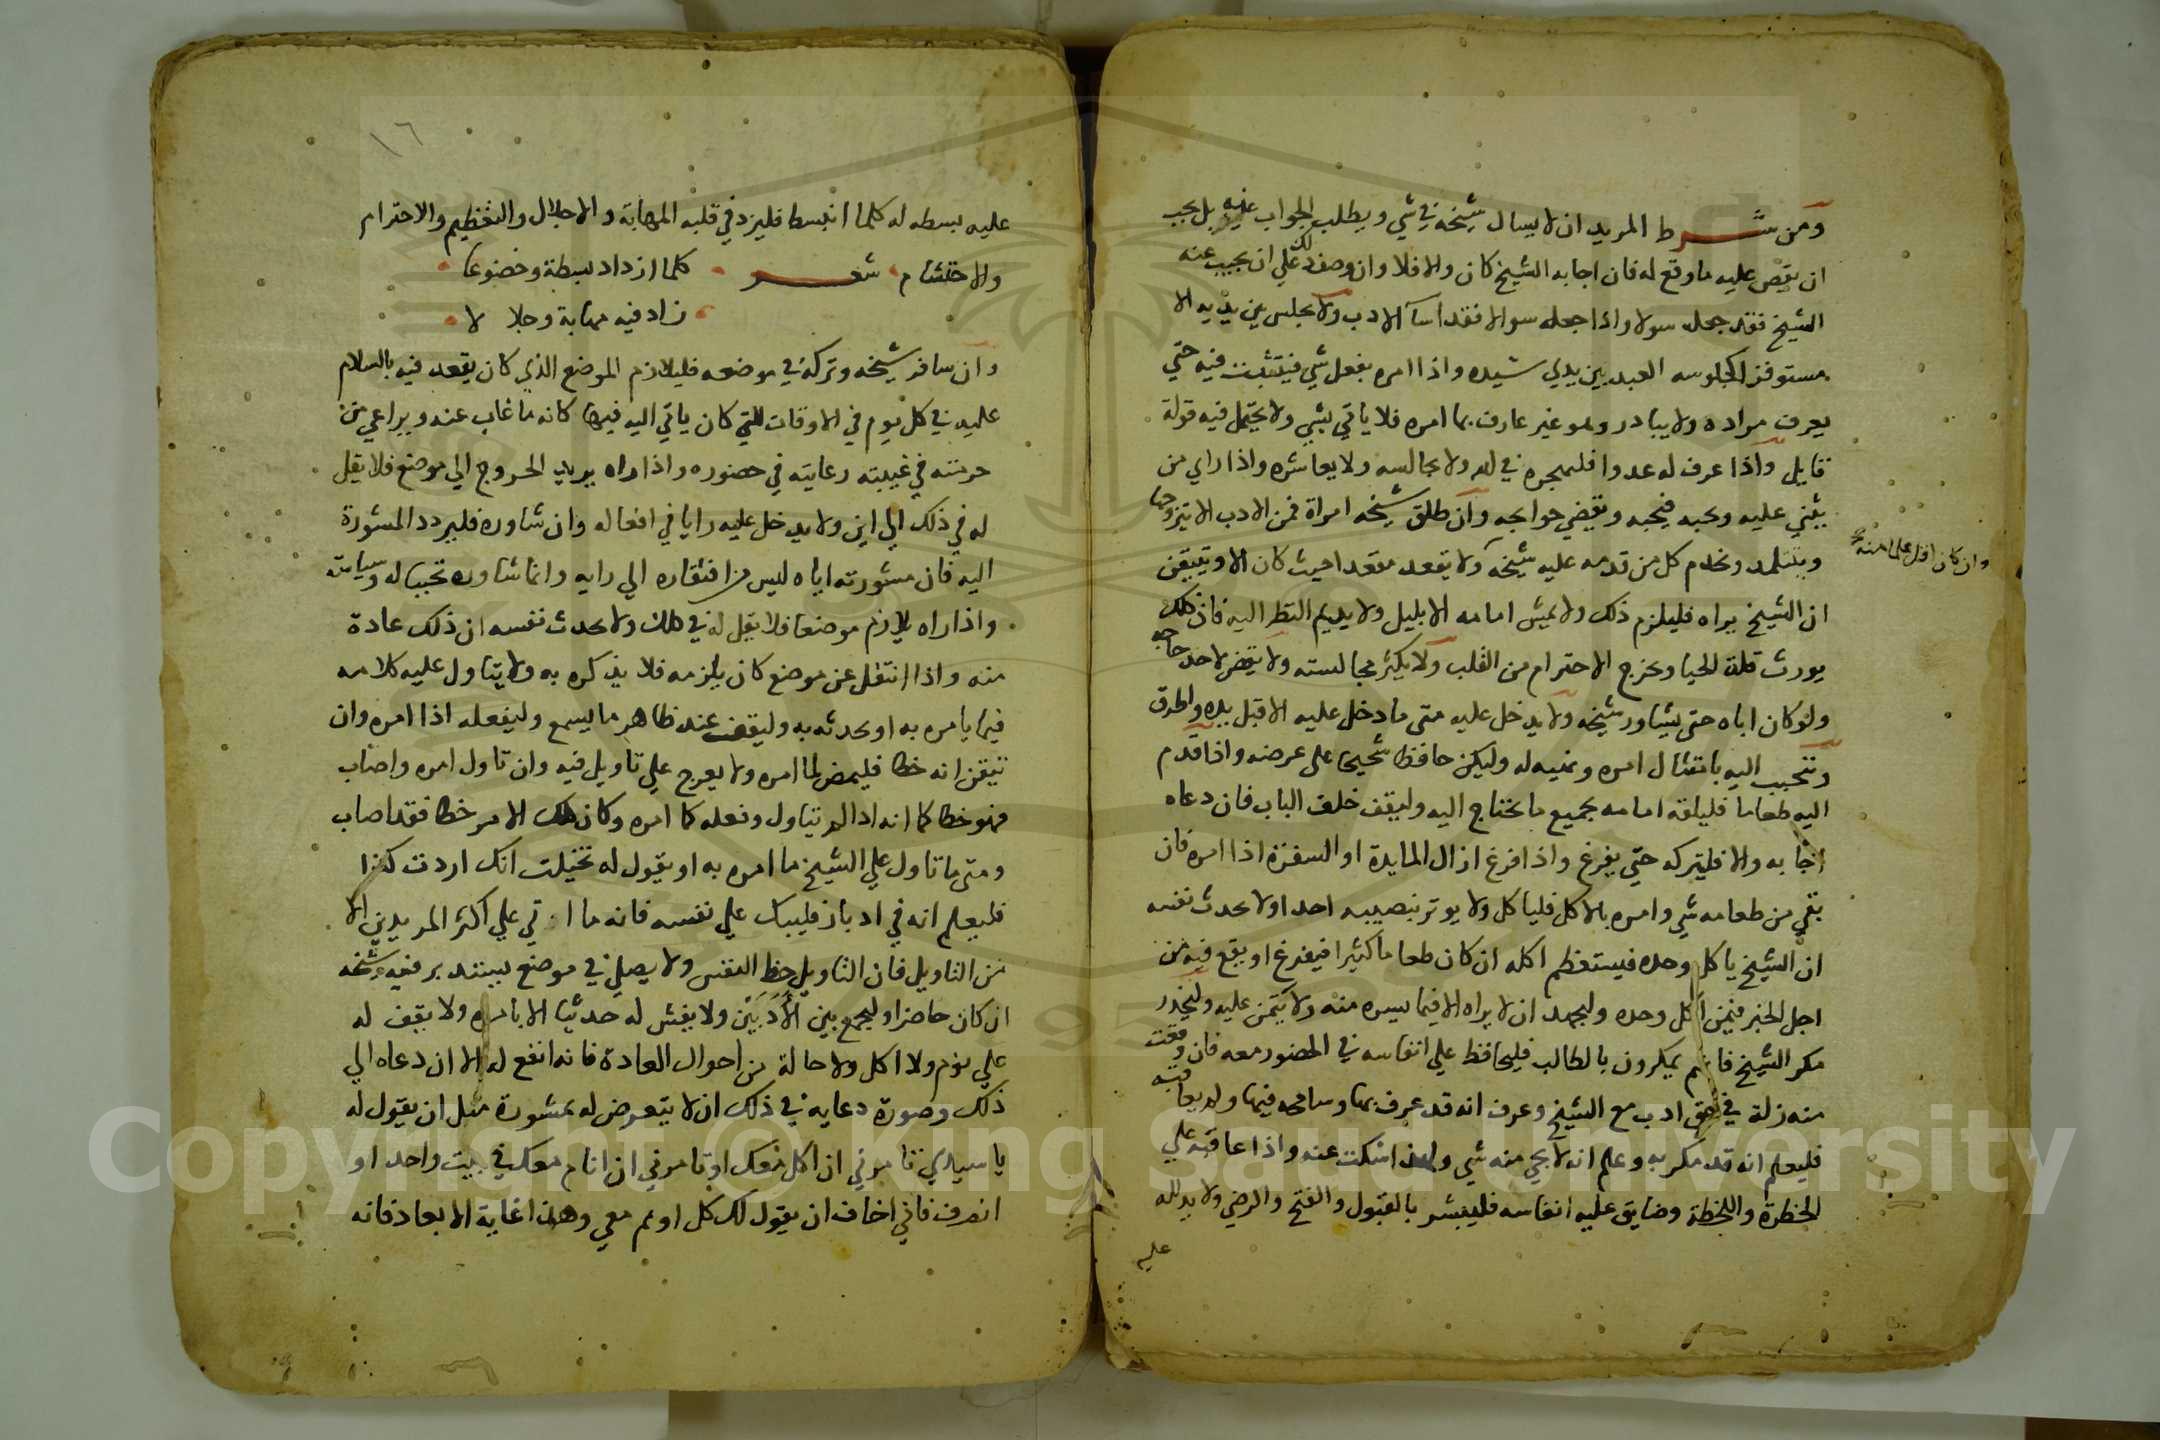 ومن شرط المريد ان لا يسال شيخه في شي ويطلب الجواب عنه بل يجب
ان يقص عليه ما وقع له فان اجابه الشيخ كان والا فلا وان وصف ذلك علي ان يجيب عنه
الشيخ فقد جعله سولا واذا جعله سوالا فقد اسآ الادب ولا يجلس بين يديه الا
مستوفزا كجلوسه العبد بين يدي سيده واذا امره بفعل شي فيتثبت فيه حتي
يعرف مراده ولا يبادر وهو غير عارف بما امره فلا ياتي بشي ولا يحتمل فيه قولة
قايل واذا عرف له عدوا فليهجره في الله ولا يجالسه ولا يعاشره واذا راي من
يثني عليه ويحبه فيحبه ويقضي حوايجه وان طلق شيخه امراة فمن الادب الا يتزوجها
ويتلمد ويخدم كل من قدمه عليه شيخه ولا يقعد مقعدا حيث كان الا ويتيقن
وان كان اقل علما منه
ان الشيخ يراه فليلزم ذلك ولا يمش امامه الا بليل ولا يديم النظر اليه فان ذلك
يورث قلة الحيا ويخرج الاحترام من القلب ولا يكثر مجالسته ولا يقض لاحد حاجه
ولو كان اباه حتى يشاور شيخه ولا يدخل عليه متى ما دخل عليه الا قبل يده واطرق
وتحبب اليه بامتثال امره ونهيه له وليكن حافظا شحيحا على عرضه واذا قدم
اليه طعاما فليلقه امامه بجميع ما يحتاج اليه وليقف خلف الباب فان دعاه
اجابه والا فليتركه حتي يفرغ واذا فرغ ازال المايدة او السفرة اذا امره فان
بقي من طعامه شي وامره بالاكل فلياكل ولا يوثر بنصيبه احدا ولا يحدث نفسه
ان الشيخ ياكل وحده فيستعظم اكله ان كان طعاما كثيرا فيفرغ او يقع فيه من
اجل الخبر فيمن اكل وحده وليجهد ان لا يراه الا فيما يسره منه ولا يتمن عليه وليحذر
مكر الشيخ فانهم يمكرون بالطالب فليحافظ علي انفاسه في الحضور معه فان وقعت
منه زلة في حق ادب مع الشيخ وعرف انه قد عرف بها وسامحه فيها ولم يعاقبه
فليعلم انه قد مكر به وعلم انه لا يجي منه شي ولهذا اسكت عنه واذا عاقبه علي
الخطرة واللحظة وضايق عليه انفاسه فليبشر بالقبول والفتح والرضي ولا يدلله
عليه
١٦
عليه بسطه له كلما انبسط فليزد في قلبه المهابة والاجلال والتعظيم والاحترام
والاحتشام شعر كلما ازداد بسطة وخضوعا
زاد فيه مهابة وجلالا
وان سافر شيخه وتركه في موضعه فليلازم الموضع الذي كان يقعد فيه بالسلام
عليه في كل يوم في الاوقات التي كان ياتي اليه فيها كانه ما غاب عنه ويراعي من
حرمته في غيبته رعايته في حضوره واذا راه يريد الخروج الي موضع فلا يقل
له في ذلك الي اين ولا يدخل عليه رايا في افعاله وان شاوره فليردد المشورة
اليه فان مشورته اياه ليس من افتقاره الي رايه وانما شاوره تحببا له وسياسة
واذا راه يلازم موضعا فلا يقل له في ذلك ولا يحدث نفسه ان ذلك عادة
منه واذا انتقل عن موضع كان يلزمه فلا يذكره به ولا يتاول عليه كلامه
فيما يامره به او يحدثه به وليقف عند ظاهر ما يسمع وليفعله اذا امره وان
تيقن انه خطا فليمض لما امره ولا يعرج علي تاويل فيه وان تاول امره واصاب
فهو خطا كما انه اذا لم يتاول وفعله كما امره وكان ذلك الامر خطا فقد اصاب
ومتى ما تاول علي الشيخ ما امره به او يقول له تخيلت انك اردت كذا
فليعلم انه في ادبار فليبك علي نفسه فانه ما اتي علي اكثر المريدين الا
من التاويل فان التاويل حظ النفس ولا يصلي في موضع يستند برفقه وشيخه
ان كان حاضرا وليجمع بين الأدبين ولا يفش له حديثا الا بامره ولا يقف له
علي نوم ولا اكل ولا حالة من احوال العادة فانه انفع له الا ان دعاه الي
ذلك وصورة دعايه في ذلك ان لا يتعرض له بمشورة مثل ان يقول له
يا سيدي تامرني ان اكل معك او تامرني ان انام معك في بيت واحد او
انصرف فاني اخاف ان يقول لك كل او نم معي وهذا غاية الابعاد فانه
Copyright © King Saud University